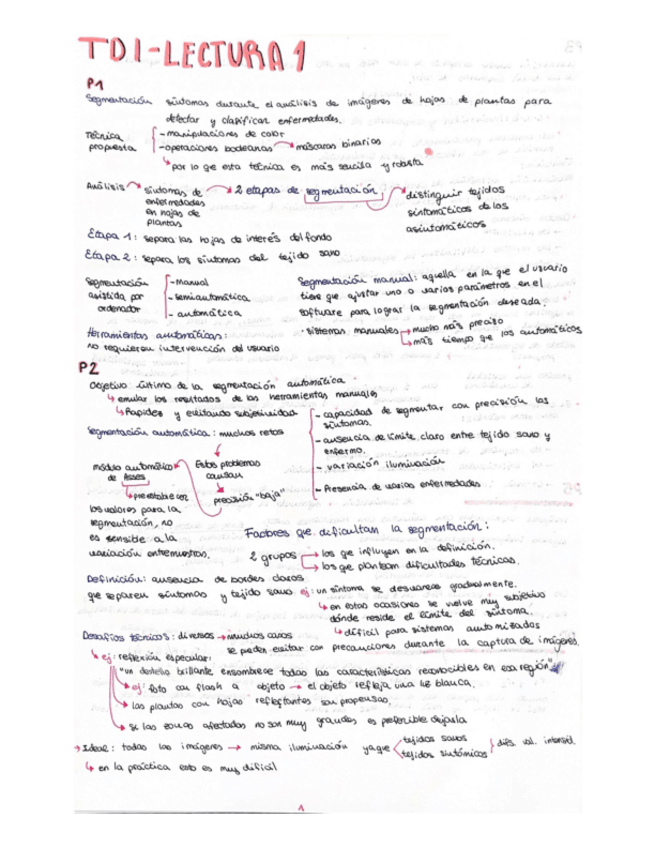 TDI-LECTURA 1
P1
Segmentación síntomas durante el análisis de imágenes de hojas de plantas para
detectar y clasificar enfermedades.
Técnica propuesta
- manipulaciones de color
- operaciones booleanas → máscaras binarias
↳ por lo qe esta técnica es más sencilla y robusta
Análisis → síntomas de enfermedades en hojas de plantas → 2 etapas de segmentación → distinguir tejidos sintomáticos de los asintomáticos
Etapa 1: separa las hojas de interés del fondo
Etapa 2: separa los síntomas del tejido sano
Segmentación asistida por ordenador
- manual
- semiautomática
- automática
Segmentación manual: aquella en la que el usuario
tiene que ajustar uno o varios parámetros en el
software para lograr la segmentación deseada.
· sistemas manuales → mucho más preciso
↳ más tiempo qe los automáticos
Herramientas automáticas:
no requieren intervención del usuario
P2
Objetivo último de la segmentación automática
↳ emular los resultados de las herramientas manuales
↳ Rapidez y evitando subjetividad
Segmentación automática: muchos retos
- capacidad de segmentar con precisión los
síntomas.
- ausencia de límite claro entre tejido sano y
enfermo.
- variación iluminación
- Presencia de varias enfermedades
Estos problemas
causan
precisión "baja"
módulo automático
de Assess
↳ preestablecer
los valores para la
segmentación, no
es sensible a la
variación entre muestras.
Factores que dificultan la segmentación:
2 grupos → los qe influyen en la definición.
↳ los qe plantean dificultades técnicas.
Definición: ausencia de bordes claros
que separen síntomas y tejido sano ej: un síntoma se desvanece gradualmente.
↳ en estas ocasiones se vuelve muy subjetivo
dónde reside el límite del síntoma.
↳ difícil para sistemas automatizados
Desafíos técnicos: diversos → muchos casos
se pueden evitar con precauciones durante la captura de imágenes.
↳ ej: reflexión especular:
"un destello brillante ensombrece todas las características reconocibles en esa región"
↳ ej: foto con flash a objeto → el objeto refleja una luz blanca.
↳ las plantas con hojas reflectantes son propensas
↳ si las zonas afectadas no son muy grandes es preferible dejarla
→ Ideal: todas las imágenes → misma iluminación ya que < tejidos sanos
tejidos sintómicos } difs. val. intensid.
↳ en la práctica esto es muy difícil
1